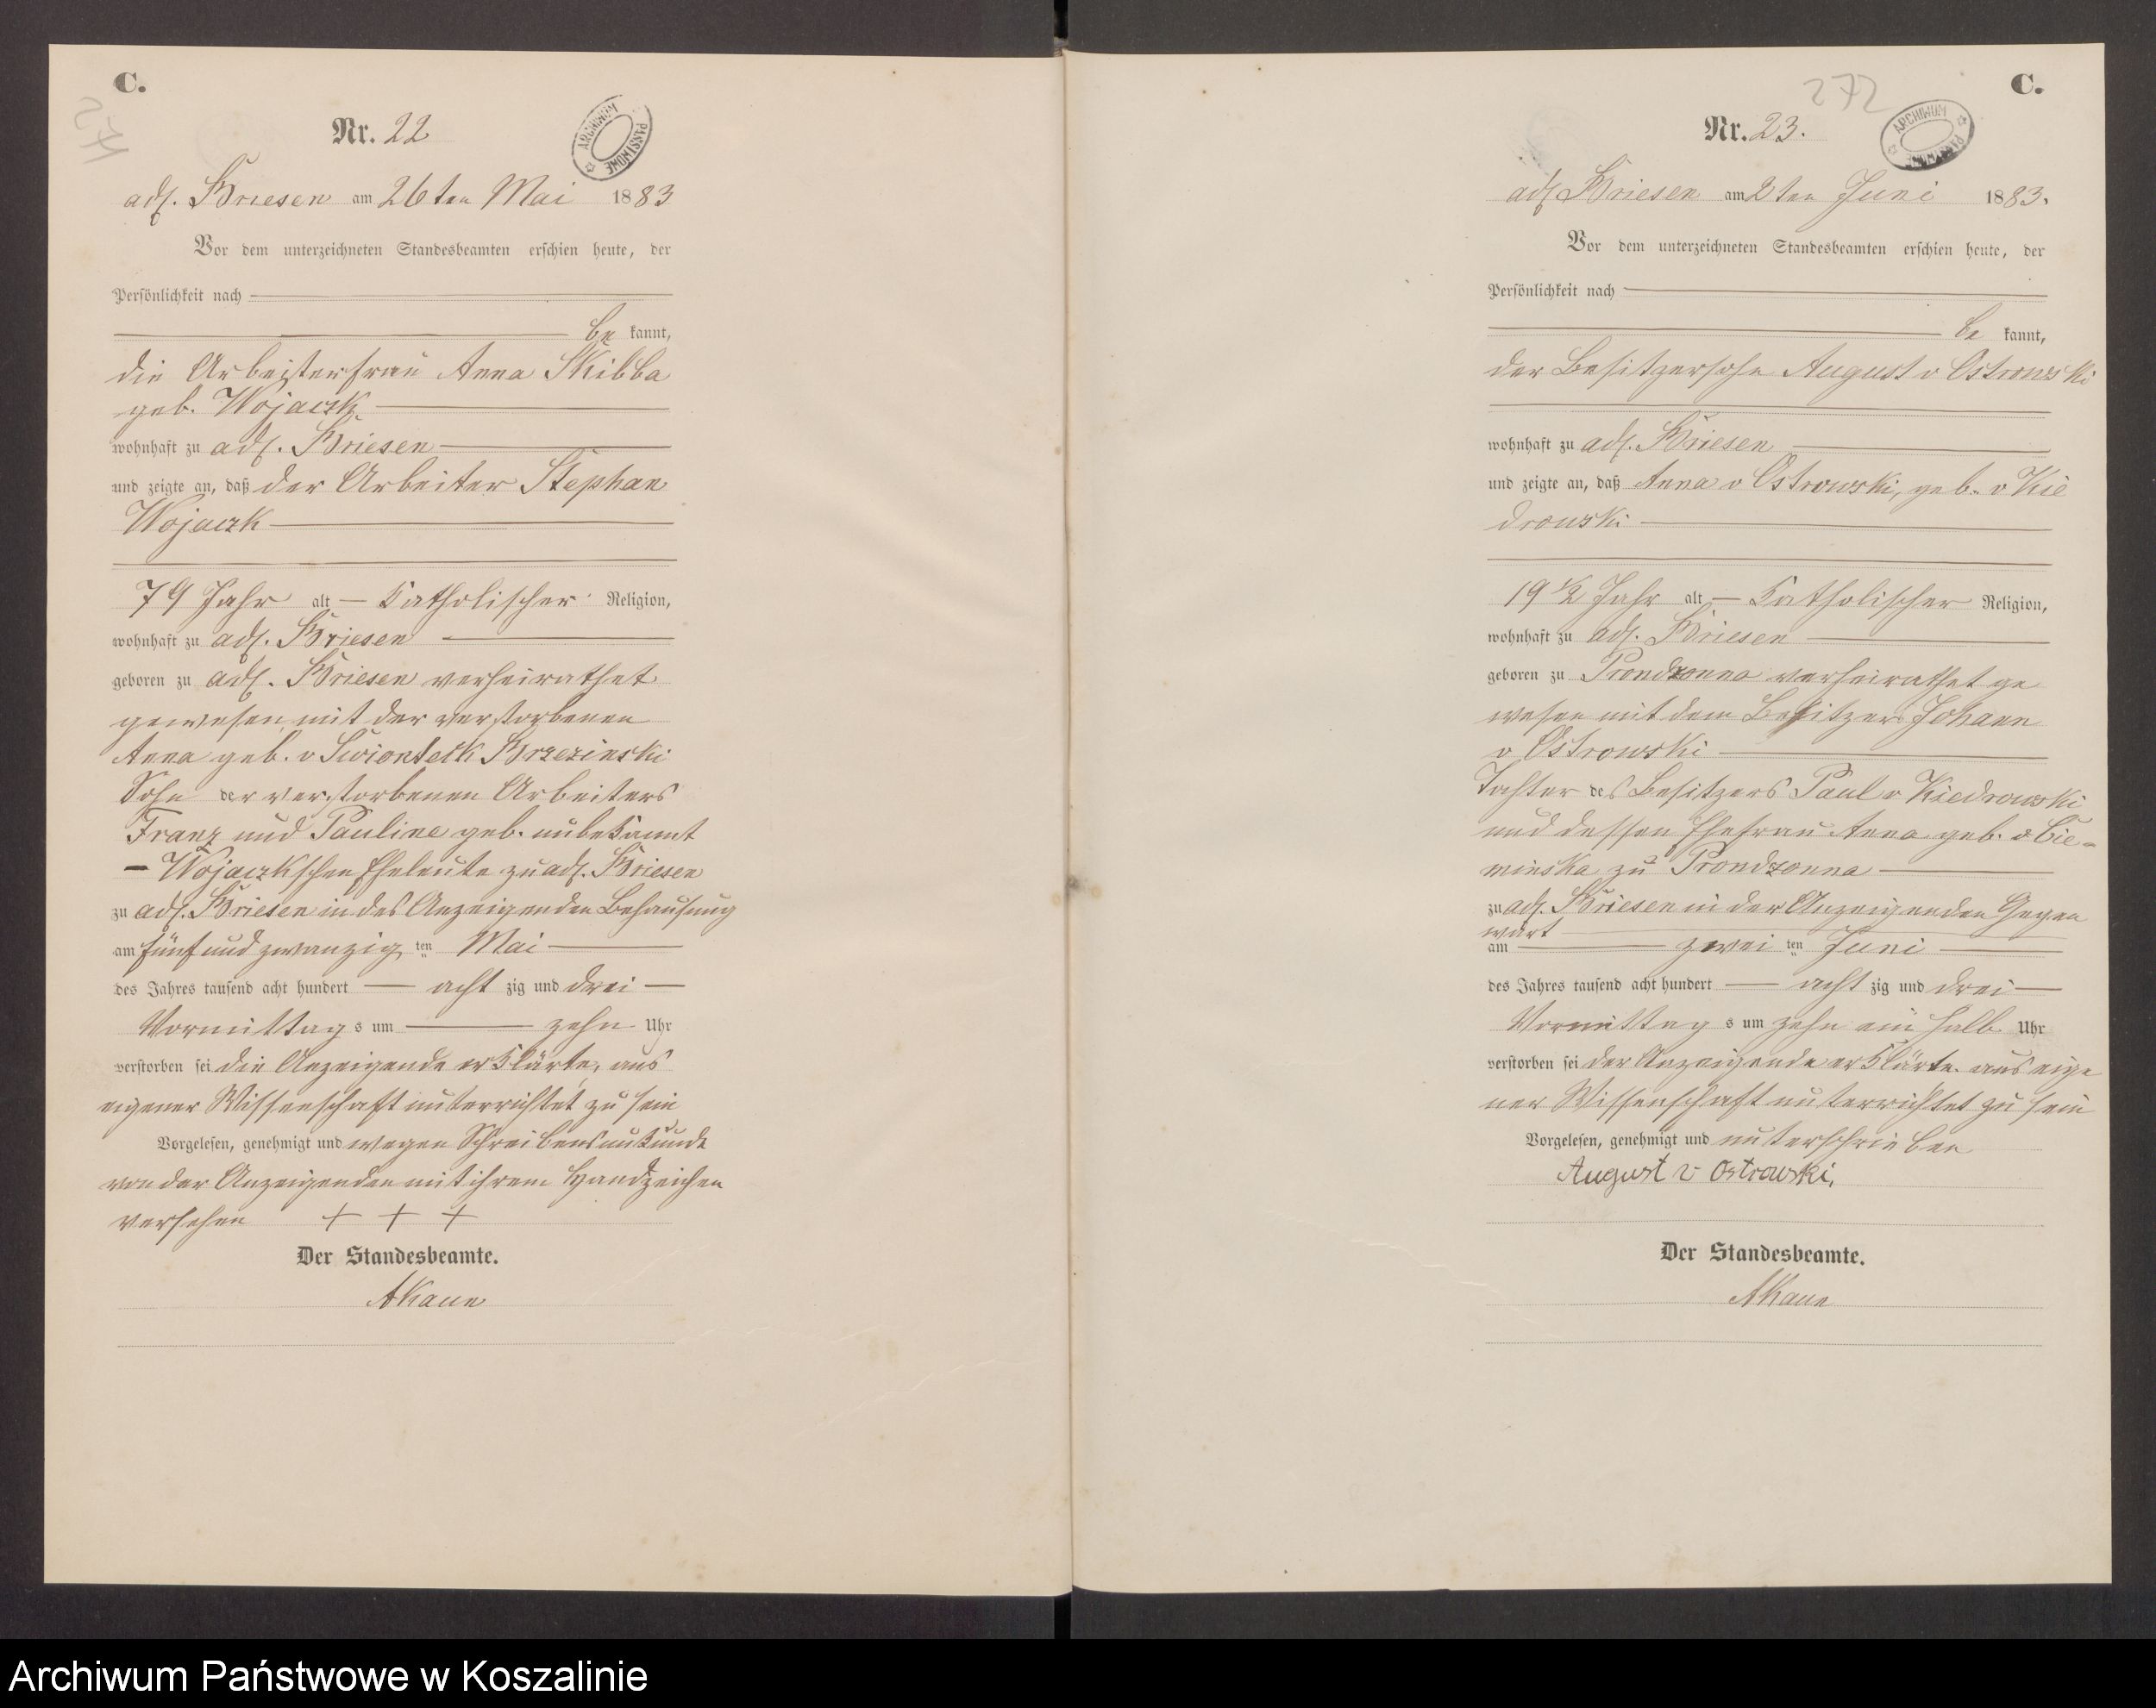 C.
271
Nr. 22
ARCHIWUM PAŃSTWOWE
adl. Briesen am 26ten Mai 1883
Vor dem unterzeichneten Standesbeamten erschien heute, der
Persönlichkeit nach
be kannt,
die Arbeiterfrau Anna Skibba
geb. Wojaczk
wohnhaft zu adl. Briesen
und zeigte an, daß der Arbeiter Stephan
Wojaczk
79 Jahr alt – Katholischer Religion,
wohnhaft zu adl. Briesen
geboren zu adl. Briesen verheirathet
gewesen mit der verstorbenen
Anna geb. v Swionteck Brzezinski
Sohn der verstorbenen Arbeiters
Franz und Pauline geb. unbekannt
– Wojaczkschen Eheleute zu adl. Briesen
zu adl. Briesen in des Anzeigenden Behausung
am fünf und zwanzig ten Mai
des Jahres tausend acht hundert acht zig und drei
Vormittag s um zehn Uhr
verstorben sei die Anzeigende erklärte, aus
eigener Wissenschaft unterrichtet zu sein
Vorgelesen, genehmigt und wegen Schreibensunkunde
von der Anzeigenden mit ihrem Handzeichen
versehen + + +
Der Standesbeamte.
AKaun
C.
272
Nr. 23.
ARCHIWUM PAŃSTWOWE
adl Briesen am 2ten Juni 1883.
Vor dem unterzeichneten Standesbeamten erschien heute, der
Persönlichkeit nach
be kannt,
der Besitzersohn August v Ostrowski
wohnhaft zu adl. Briesen
und zeigte an, daß Anna v Ostrowski, geb. v Kie
drowski
19 1/2 Jahr alt – Katholischer Religion,
wohnhaft zu adl. Briesen
geboren zu Prondzonna verheirathet ge
wesen mit dem Besitzer Johann
v Ostrowski
Tochter des Besitzers Paul v Kiedrowski
und dessen Ehefrau Anna geb. v Cie-
minska zu Prondzonna
zu adl. Briesen in der Anzeigenden Gegen
wart
am zwei ten Juni
des Jahres tausend acht hundert acht zig und drei
Vormittag s um zehn ein halb Uhr
verstorben sei der Anzeigende erklärte aus eige
ner Wissenschaft unterrichtet zu sein
Vorgelesen, genehmigt und unterschrieben
August v Ostrowski,
Der Standesbeamte.
AKaun
Archiwum Państwowe w Koszalinie